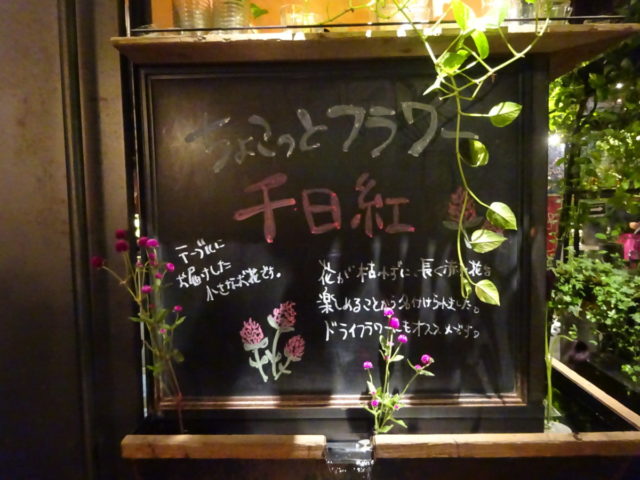 ちょこっとフラワー
千日紅
テーブルに
お届けした
小さなお花です。
花が枯れずに、長く赤い花を
楽しめることから名付けられました。
ドライフラワーにもオススメです。